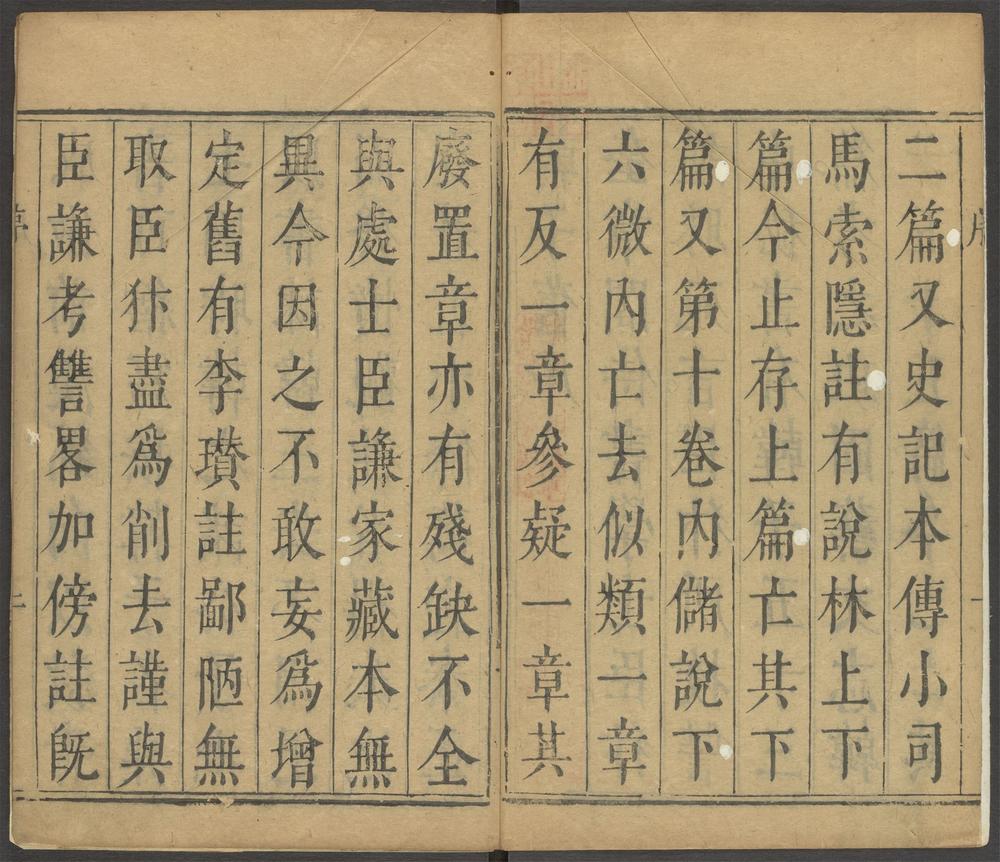 二篇又史記本傳小司
馬索隱註有說林上下
篇今止存上篇亡其下
篇又第十卷內儲說下
六微內亡去似類一章
有反一章參疑一章其
廢置章亦有殘缺不全
與處士臣謙家藏本無
異今因之不敢妄為增
定舊有李瓚註鄙陋無
取臣犿盡爲削去謹與
臣謙考讐畧加傍註旣